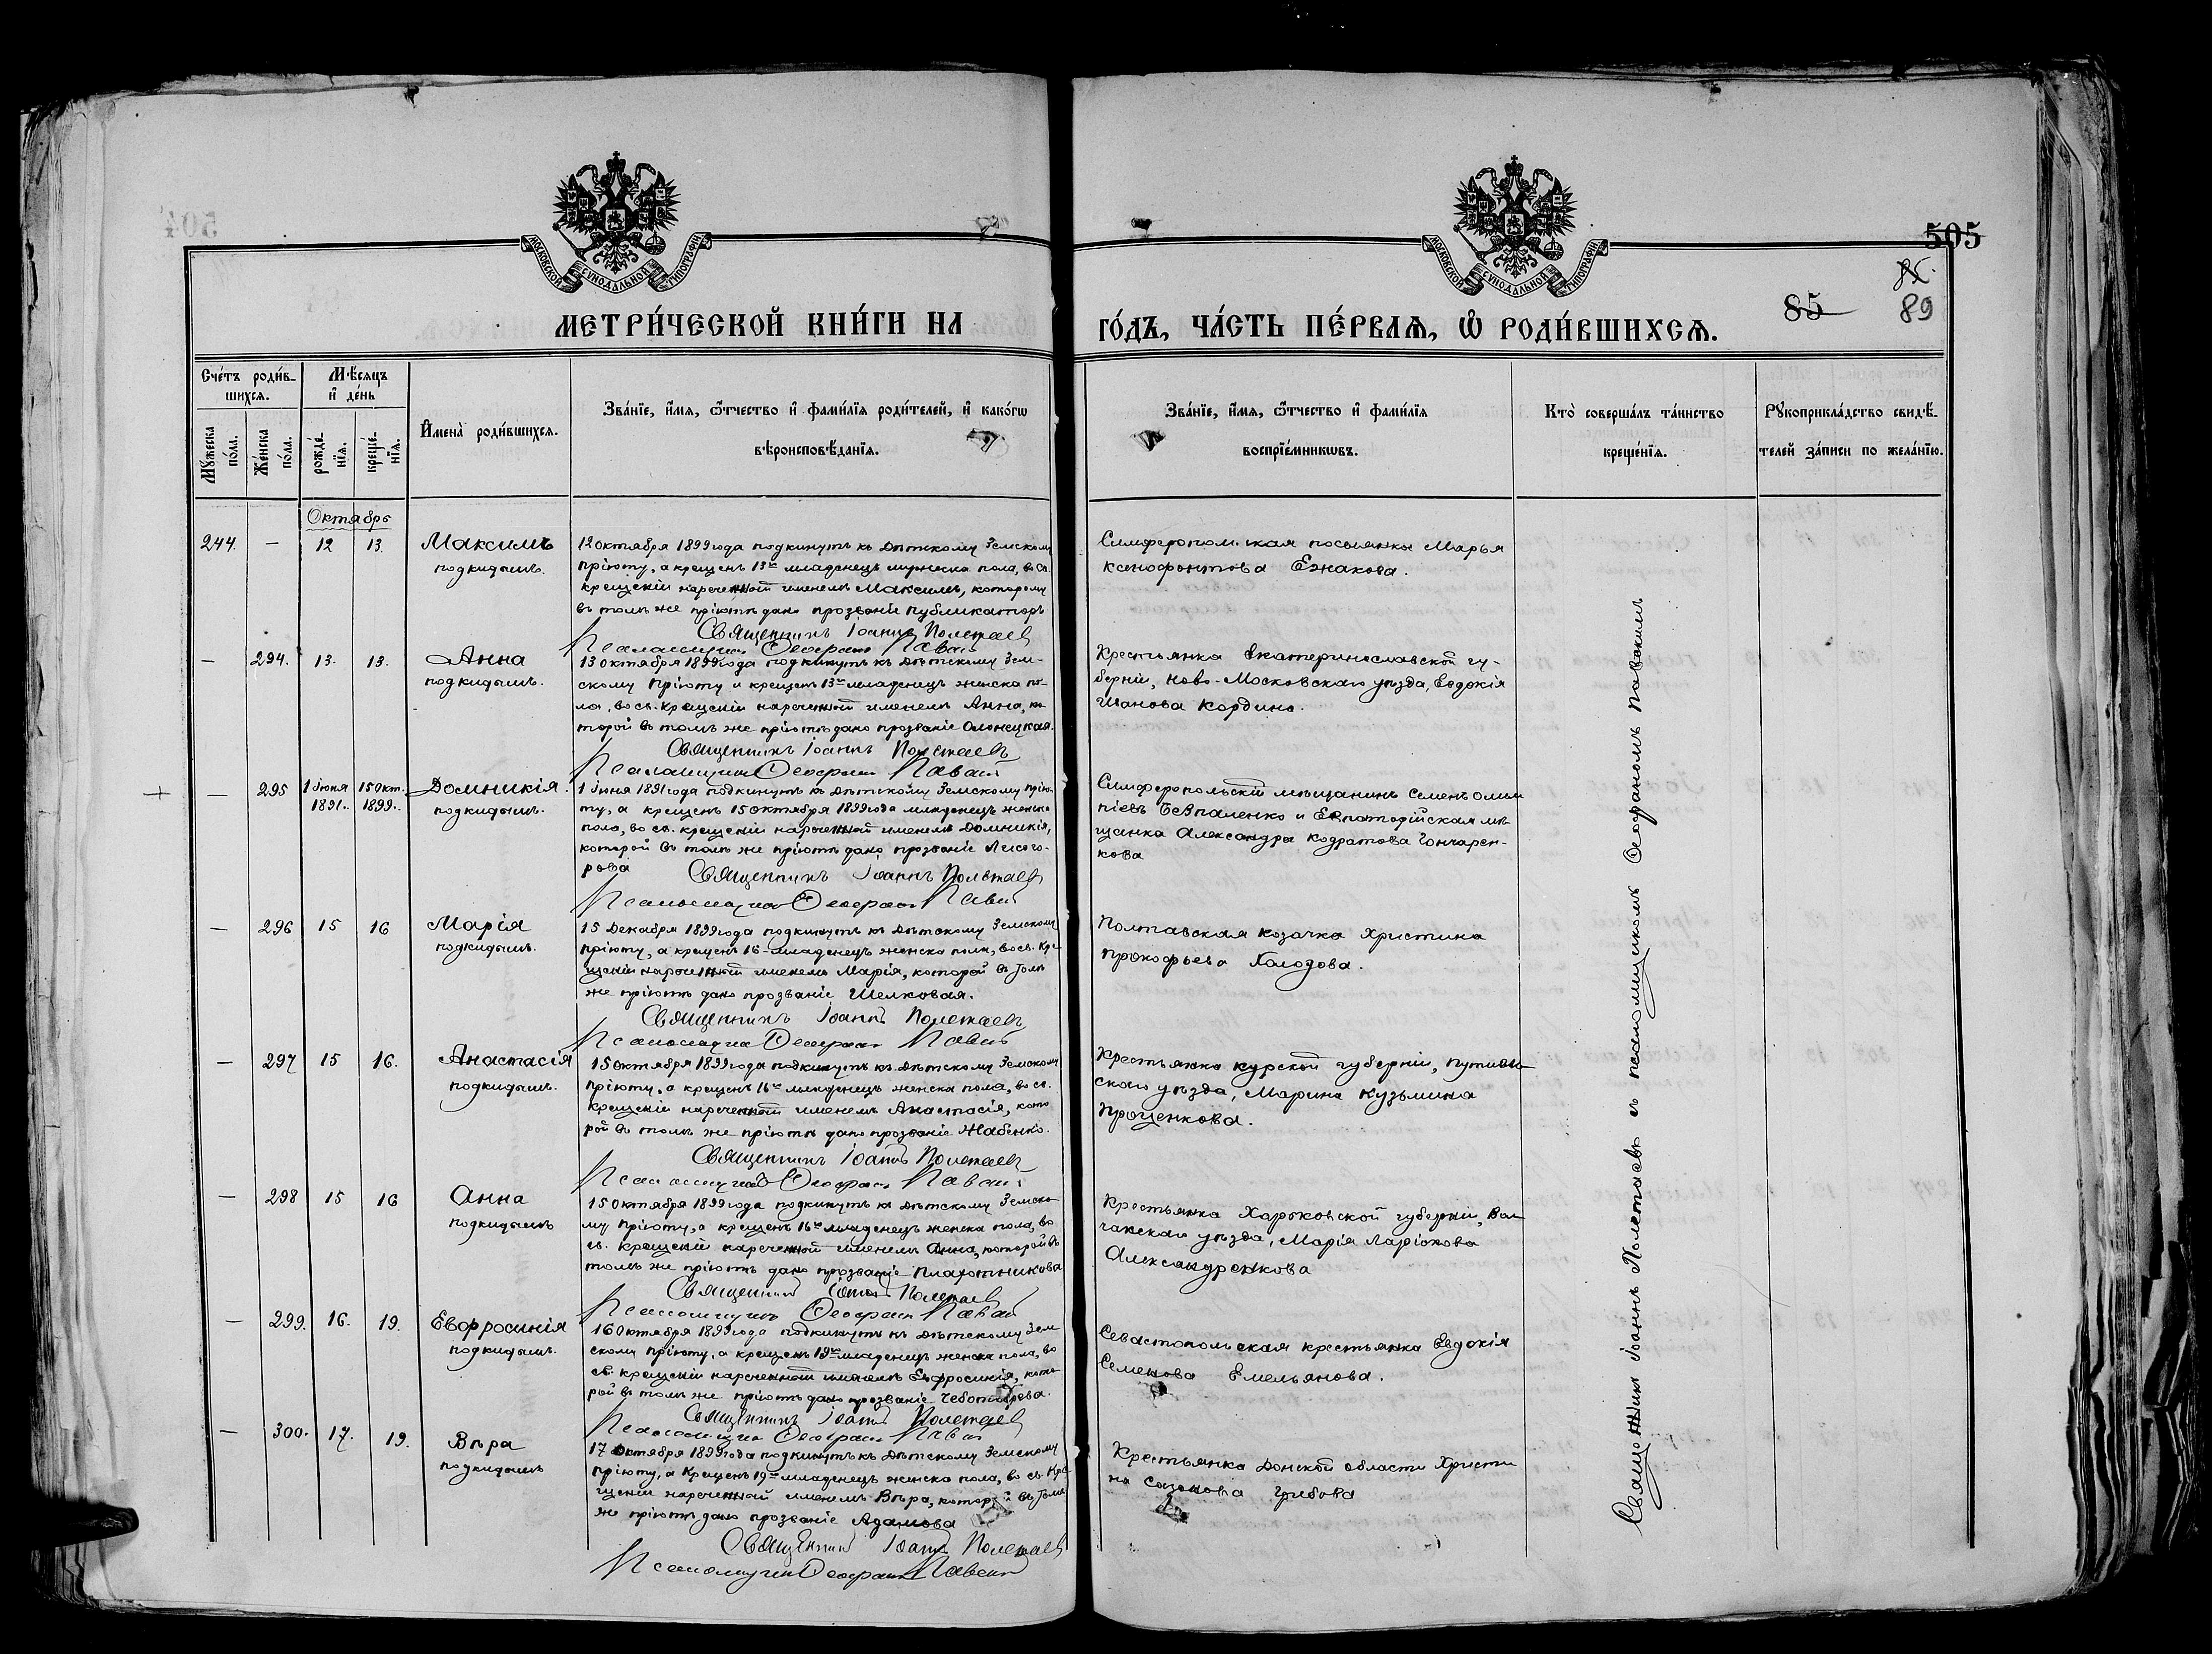 МОСКОВСКОЙ СУНОДАЛЬНОЙ ТИПОГРАФІИ
МОСКОВСКОЙ СУНОДАЛЬНОЙ ТИПОГРАФІИ
505
85
89
МЕТРИ́ЧЕСКОЙ КНИ́ГИ НА
ГО́ДЪ, ЧА́СТЬ ПЕ́РВАѦ, Ѡ РОДИ́ВШИХСѦ.
Сче́тъ роди́в-
шихсѧ.
Мꙋ́жеска по́ла.
Же́нска по́ла.
Мѣ́сѧцъ
и҆ де́нь
рожде́-
нїѧ.
креще́-
нїѧ.
И҆мена̀ роди́вшихсѧ.
Зва́нїе, и҆́мѧ, ѻ҆́тчество и҆ фами́лїѧ роди́телей, и҆ како́гѡ
вѣроисповѣ́данїѧ.
Зва́нїе, и҆́мѧ, ѻ҆́тчество и҆ фами́лїѧ
воспрїе́мникѡвъ.
Кто̀ соверша́лъ та́инство
креще́нїѧ.
Рꙋкоприкла́дство свидѣ́-
телей за́писи по жела́нїю.
Октябрь
244. — 12 13. Максимъ
подкидышъ.
12 октября 1899 года подкинутъ къ Дѣтскому Земскому
пріюту, а крещенъ 13го младенецъ мужеска пола, во св.
крещеніи нареченный именемъ Максимъ, которому
въ томъ же пріютѣ дано прозваніе Публикаторъ
Священникъ Іоаннъ Полетаевъ
Псаломщикъ Ѳеофанъ Павскій
Симферопольская посел­янка Марья
Ксенофонтова Ежакова.
— 294. 13. 13. Анна
подкидышъ.
13 октября 1899 года подкинутъ къ Дѣтскому Зем-
скому Пріюту и крещенъ 13го младенецъ женска по-
ла, во св. крещеніи нареченный именемъ Анна, ко-
торой въ томъ же пріютѣ дано прозваніе Олонецкая.
Священникъ Іоаннъ Полетаевъ
Псаломщикъ Ѳеофанъ Павскій
Крестьянка Екатеринославской гу-
берніи, Ново-Московскаго уѣзда, Евдокія
Иванова Кордина.
+ — 295 1 Іюня 15 Окт. Домникія.
1891. 1899. подкидышъ.
1 Іюня 1891 года подкинутъ къ Дѣтскому Земскому прію-
ту, а крещенъ 15 октября 1899 года младенецъ женска
пола, во св. крещеніи нареченный именемъ Домникія,
которой въ томъ же пріютѣ дано прозваніе Лисого-
рова
Священникъ Іоаннъ Полетаевъ
Псаломщикъ Ѳеофанъ Павскій
Симферопольскій мѣщанинъ Семенъ Олим
піевъ Безпаленко и Евпаторійская мѣ-
щанка Александра Кодратова Гончарен-
кова
— 296 15 16 Марія
подкидышъ.
15 Декабря 1899 года подкинутъ къ Дѣтскому Земскому
пріюту, а крещенъ 16 младенецъ женска пола, во св. Кре-
щеніи нареченный именемъ Марія, которой въ томъ
же пріютѣ дано прозваніе Шелковая.
Священникъ Іоаннъ Полетаевъ
Псаломщикъ Ѳеофанъ Павскій
Полтавская козачка Христина
Прокофьева Холодова.
— 297 15 16. Анастасія
подкидышъ.
15 октября 1899 года подкинутъ къ Дѣтскому Земскому
Пріюту, а крещенъ 16го младенецъ женска пола, во св.
крещеніи нареченный именемъ Анастасія, кото
рой въ томъ же пріютѣ дано прозваніе Жабенко.
Священникъ Іоаннъ Полетаевъ
Псаломщикъ Ѳеофанъ Павскій
Крестьянка Курской губерніи, Путивль-
скаго уѣзда, Марина Кузьмина
Проценкова.
— 298 15 16 Анна
подкидышъ
15 октября 1899 года подкинутъ къ Дѣтскому Земско-
му Пріюту, а крещенъ 16го младенецъ женска пола, во
св. крещеніи нареченный именемъ Анна, которой въ
томъ же пріютѣ дано прозваніе Плахотникова
Священникъ Іоаннъ Полетаевъ
Псаломщикъ Ѳеофанъ Павскій
Крестьянка Харьковской губерніи, Вол-
чанскаго уѣзда, Марія Ларіонова
Александренкова
— 299. 16. 19. Евфросинія
подкидышъ.
16 октября 1899 года подкинутъ къ Дѣтскому Зем
скому Пріюту, а крещенъ 19го младенецъ женска пола, во
св. крещеніи нареченный именемъ Евфросинія, кото-
рой въ томъ же пріютѣ дано прозваніе Чеботарева.
Священникъ Іоаннъ Полетаевъ
Псаломщикъ Ѳеофанъ Павскій
Севастопольская крестьянка Евдокія
Семенова Емельянова.
— 300. 17. 19. Вѣра
подкидышъ
17 Октября 1899 года подкинутъ къ Дѣтскому Земскому
Пріюту, а Крещенъ 19го младенецъ женска пола, во св. Кре-
щеніи нареченный именемъ Вѣра, которой въ томъ
же пріютѣ дано прозваніе Адамова
Священникъ Іоаннъ Полетаевъ
Псаломщикъ Ѳеофанъ Павскій
Крестьянка Донской области Христи
на Сазонова Грибова
Священникъ Іоаннъ Полетаевъ съ псаломщикомъ Ѳеофаномъ Павскимъ